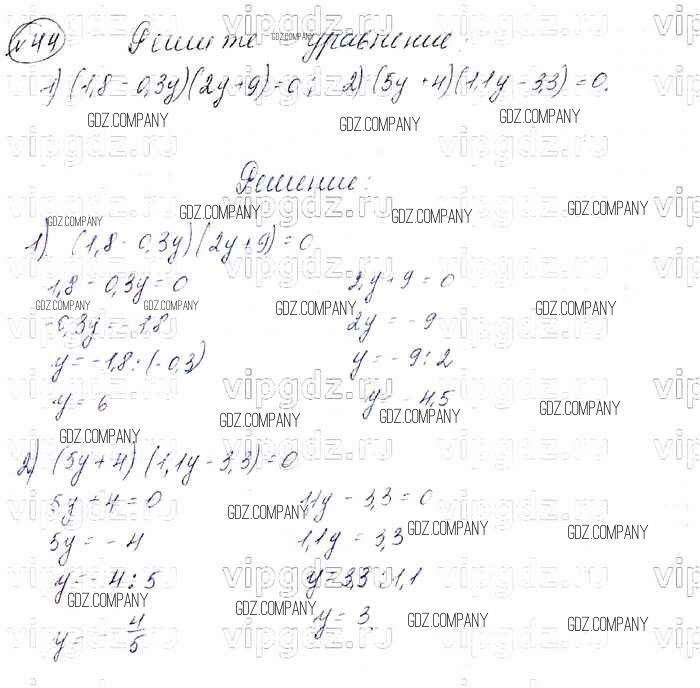 № 44 Решите уравнение.
1) (1,8 - 0,3y)(2y+9)=0; 2) (5y+4)(1,1y-3,3)=0.
Решение:
1) (1,8-0,3y)(2y+9)=0
1,8-0,3y=0 2y+9=0
-0,3y=-1,8 2y=-9
y=-1,8:(-0,3) y=-9:2
y=6 y=-4,5
2) (5y+4)(1,1y-3,3)=0
5y+4=0 1,1y-3,3=0
5y=-4 1,1y=3,3
y=-4:5 y=3,3:1,1
y=-4/5 y=3.
GDZ.COMPANY
vipgdz.ru